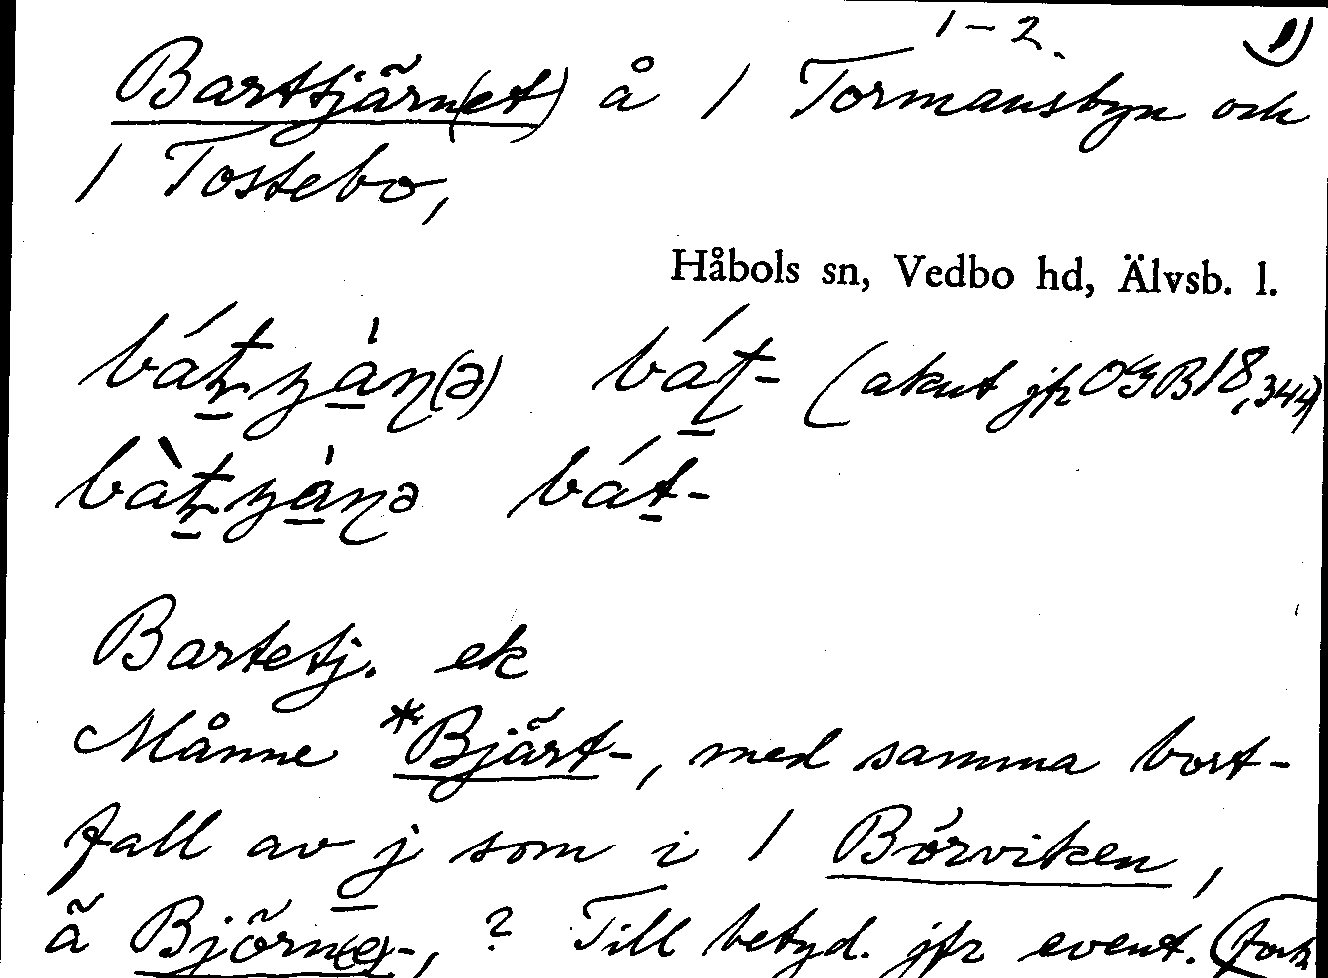 1-2. 1)
Barttjärn(et) å 1 Tormansbyn och
1 Tostebo,
Håbols sn, Vedbo hd, Älvsb. l.
(akut jfr OGB 18, 344)
Bartetj. ek
Månne *Bjärt-, med samma bort-
fall av j som i 1 Börviken,
ä Björn(e)-, ? Till betyd. jfr event. (forts.